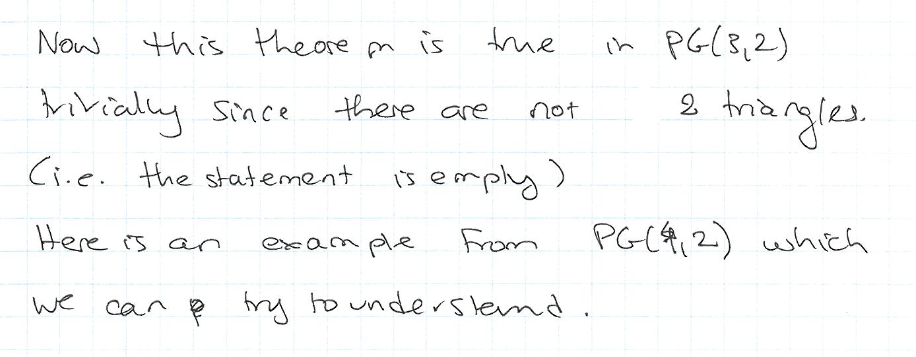 Now this theorem is true in PG(3,2)
trivially since there are not 2 triangles.
(i.e. the statement is empty)
Here is an example from PG(4,2) which
we can try to understand.